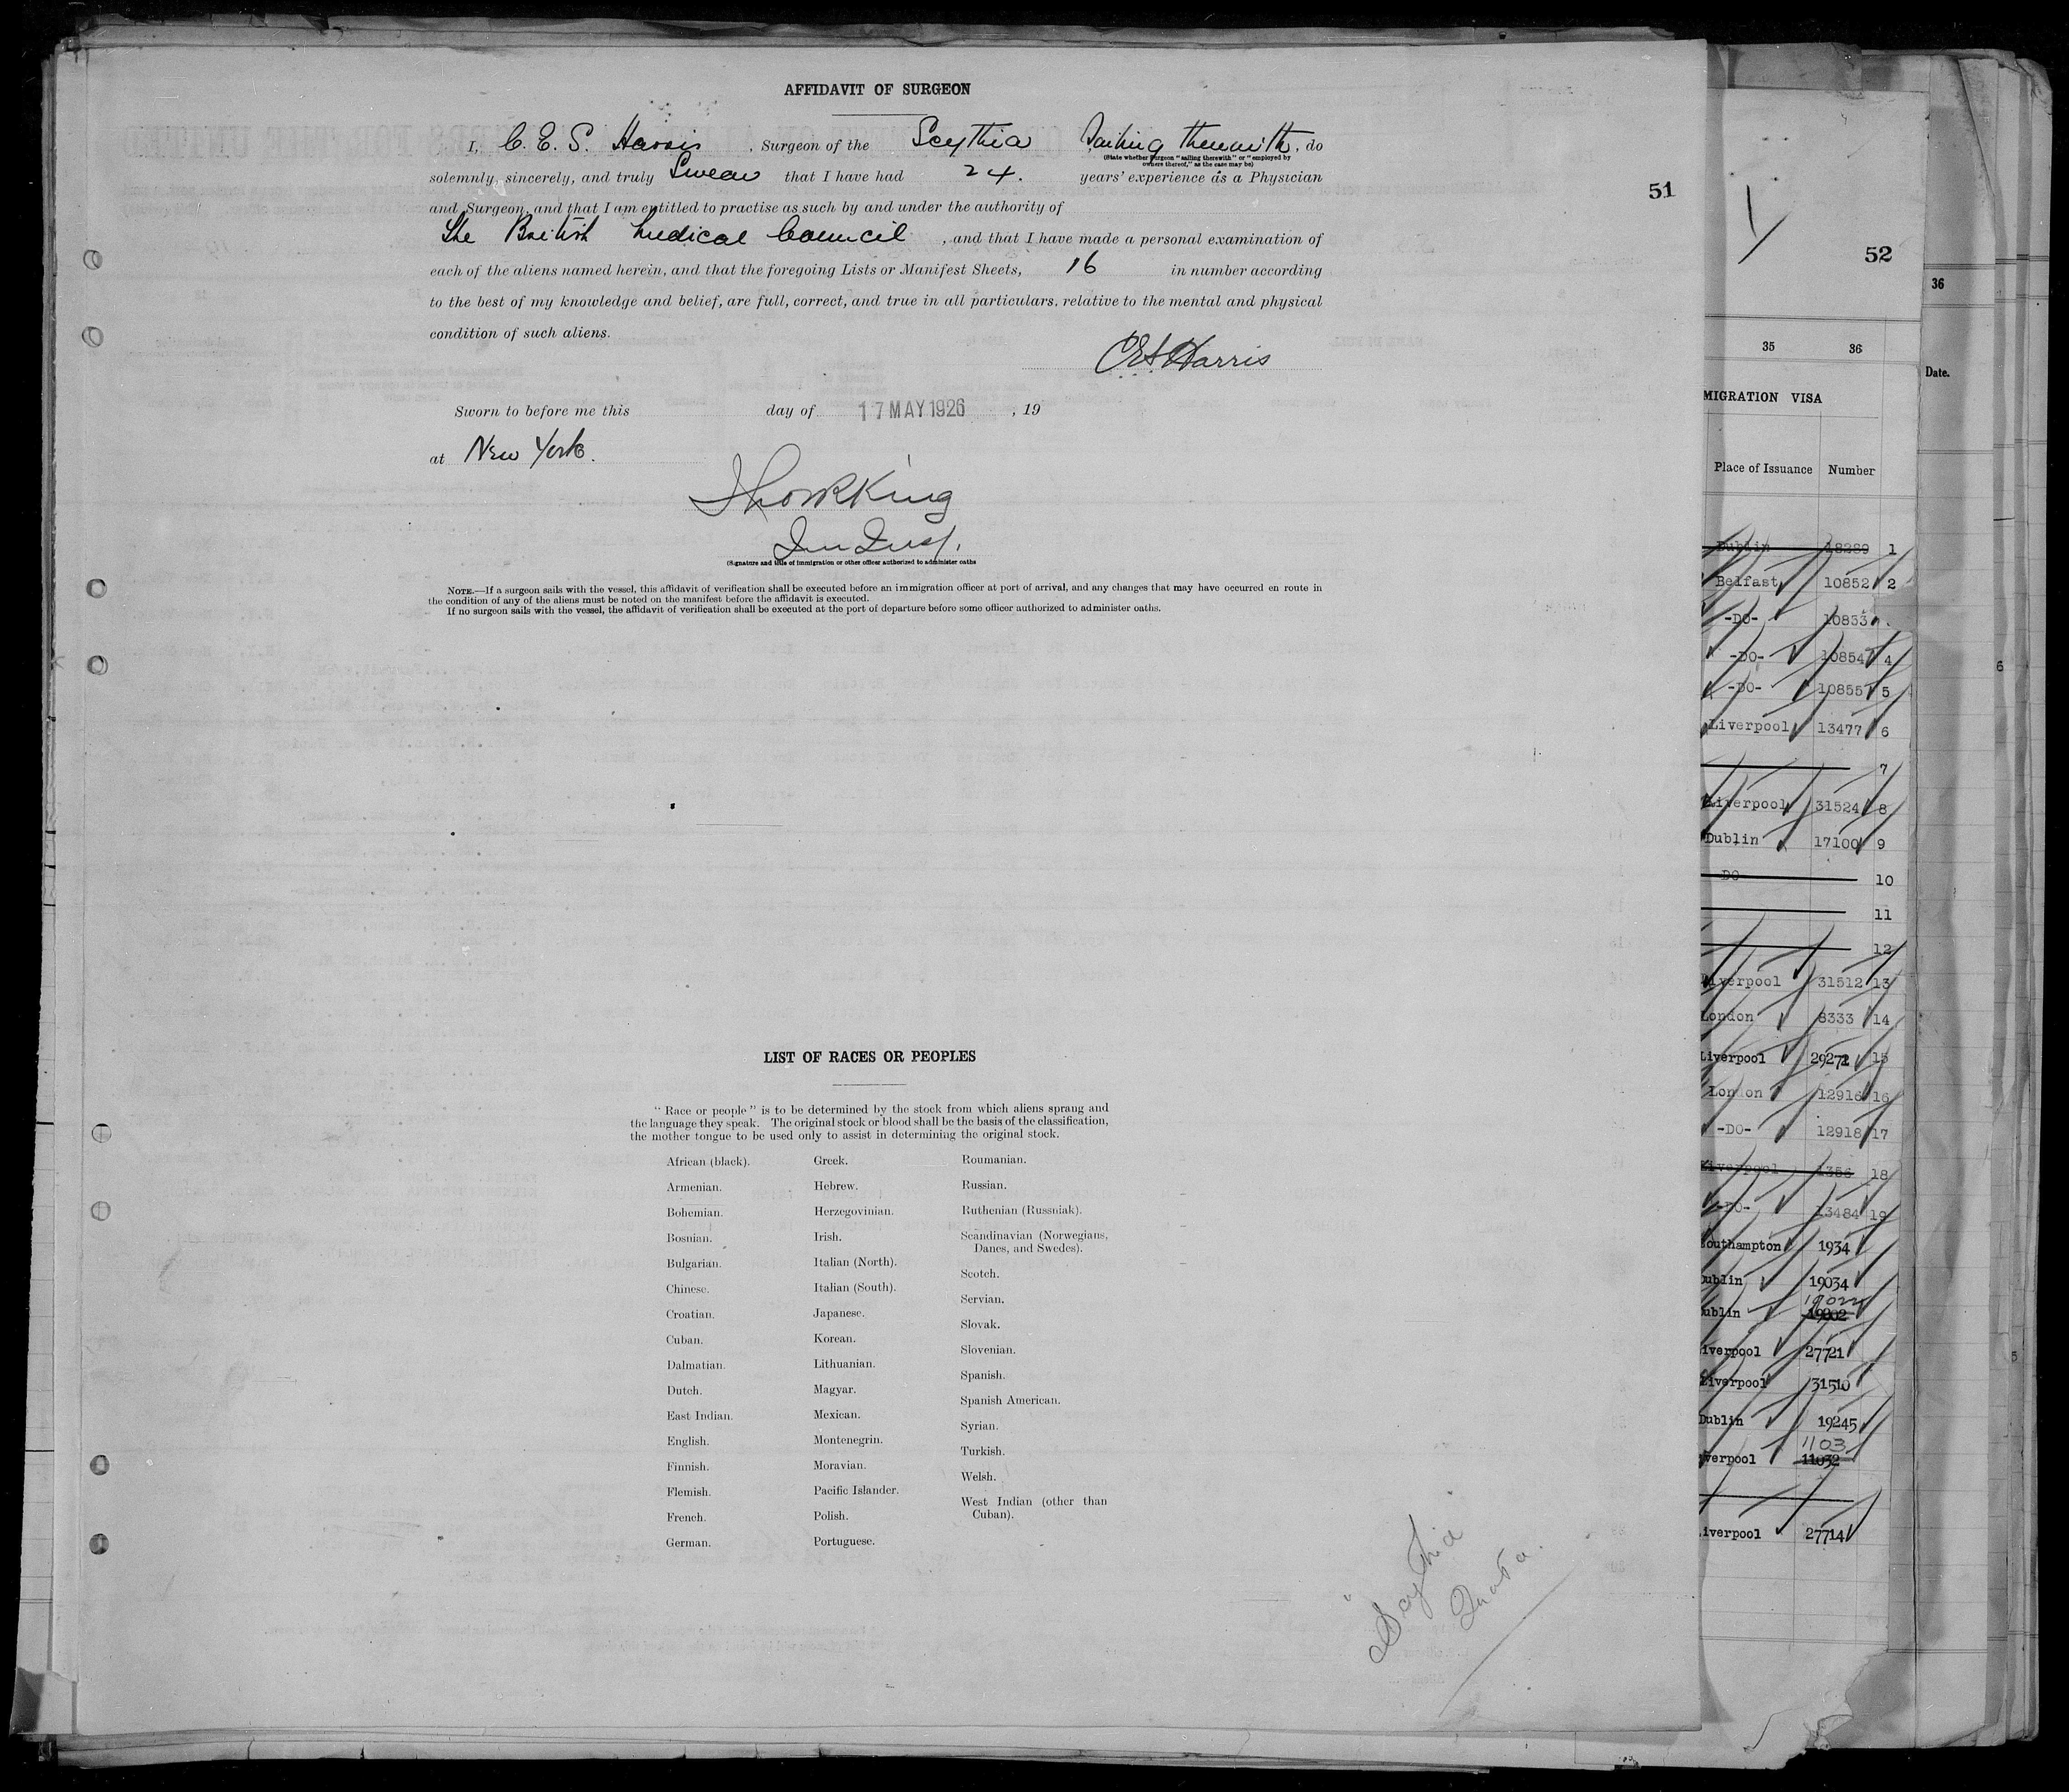 AFFIDAVIT OF SURGEON
I, C. E. S. Harris, Surgeon of the Scythia Sailing therewith, do
(State whether Surgeon "sailing therewith" or "employed by
owners thereof," as the case may be)
solemnly, sincerely, and truly Swear that I have had 24. years' experience as a Physician
and Surgeon, and that I am entitled to practise as such by and under the authority of
The British Medical Council, and that I have made a personal examination of
each of the aliens named herein, and that the foregoing Lists or Manifest Sheets, 16 in number according
to the best of my knowledge and belief, are full, correct, and true in all particulars, relative to the mental and physical
condition of such aliens.
CES Harris
Sworn to before me this day of 17 MAY 1926, 19
at New York.
King
Imm Insp.
(Signature and title of immigration or other officer authorized to administer oaths
NOTE.—If a surgeon sails with the vessel, this affidavit of verification shall be executed before an immigration officer at port of arrival, and any changes that may have occurred en route in
the condition of any of the aliens must be noted on the manifest before the affidavit is executed.
If no surgeon sails with the vessel, the affidavit of verification shall be executed at the port of departure before some officer authorized to administer oaths.
LIST OF RACES OR PEOPLES
"Race or people" is to be determined by the stock from which aliens sprang and
the language they speak. The original stock or blood shall be the basis of the classification,
the mother tongue to be used only to assist in determining the original stock.
African (black).
Armenian.
Bohemian.
Bosnian.
Bulgarian.
Chinese.
Croatian.
Cuban.
Dalmatian.
Dutch.
East Indian.
English.
Finnish.
Flemish.
French.
German.
Greek.
Hebrew.
Herzegovinian.
Irish.
Italian (North).
Italian (South).
Japanese.
Korean.
Lithuanian.
Magyar.
Mexican.
Montenegrin.
Moravian.
Pacific Islander.
Polish.
Portuguese.
Roumanian.
Russian.
Ruthenian (Russniak).
Scandinavian (Norwegians,
Danes, and Swedes).
Scotch.
Servian.
Slovak.
Slovenian.
Spanish.
Spanish American.
Syrian.
Turkish.
Welsh.
West Indian (other than
Cuban).
"Scythia"
Quota.
51
52
35 36
MIGRATION VISA
Place of Issuance Number
Dublin 18289 1
Belfast 10852 2
-DO- 10853
-DO- 10854 4
-DO- 10855 5
Liverpool 13477 6
7
Liverpool 31524 8
Dublin 17100 9
DO 10
11
12
Liverpool 31512 13
London 8333 14
Liverpool 29272 15
London 12916 16
-DO- 12918 17
Liverpool 1356 18
-DO- 13484 19
outhampton 1934
ublin 19034
19022
ublin 19802
iverpool 27721
iverpool 31510
Dublin 19245
1103
verpool 11032
iverpool 27714
36
Date.
6
5